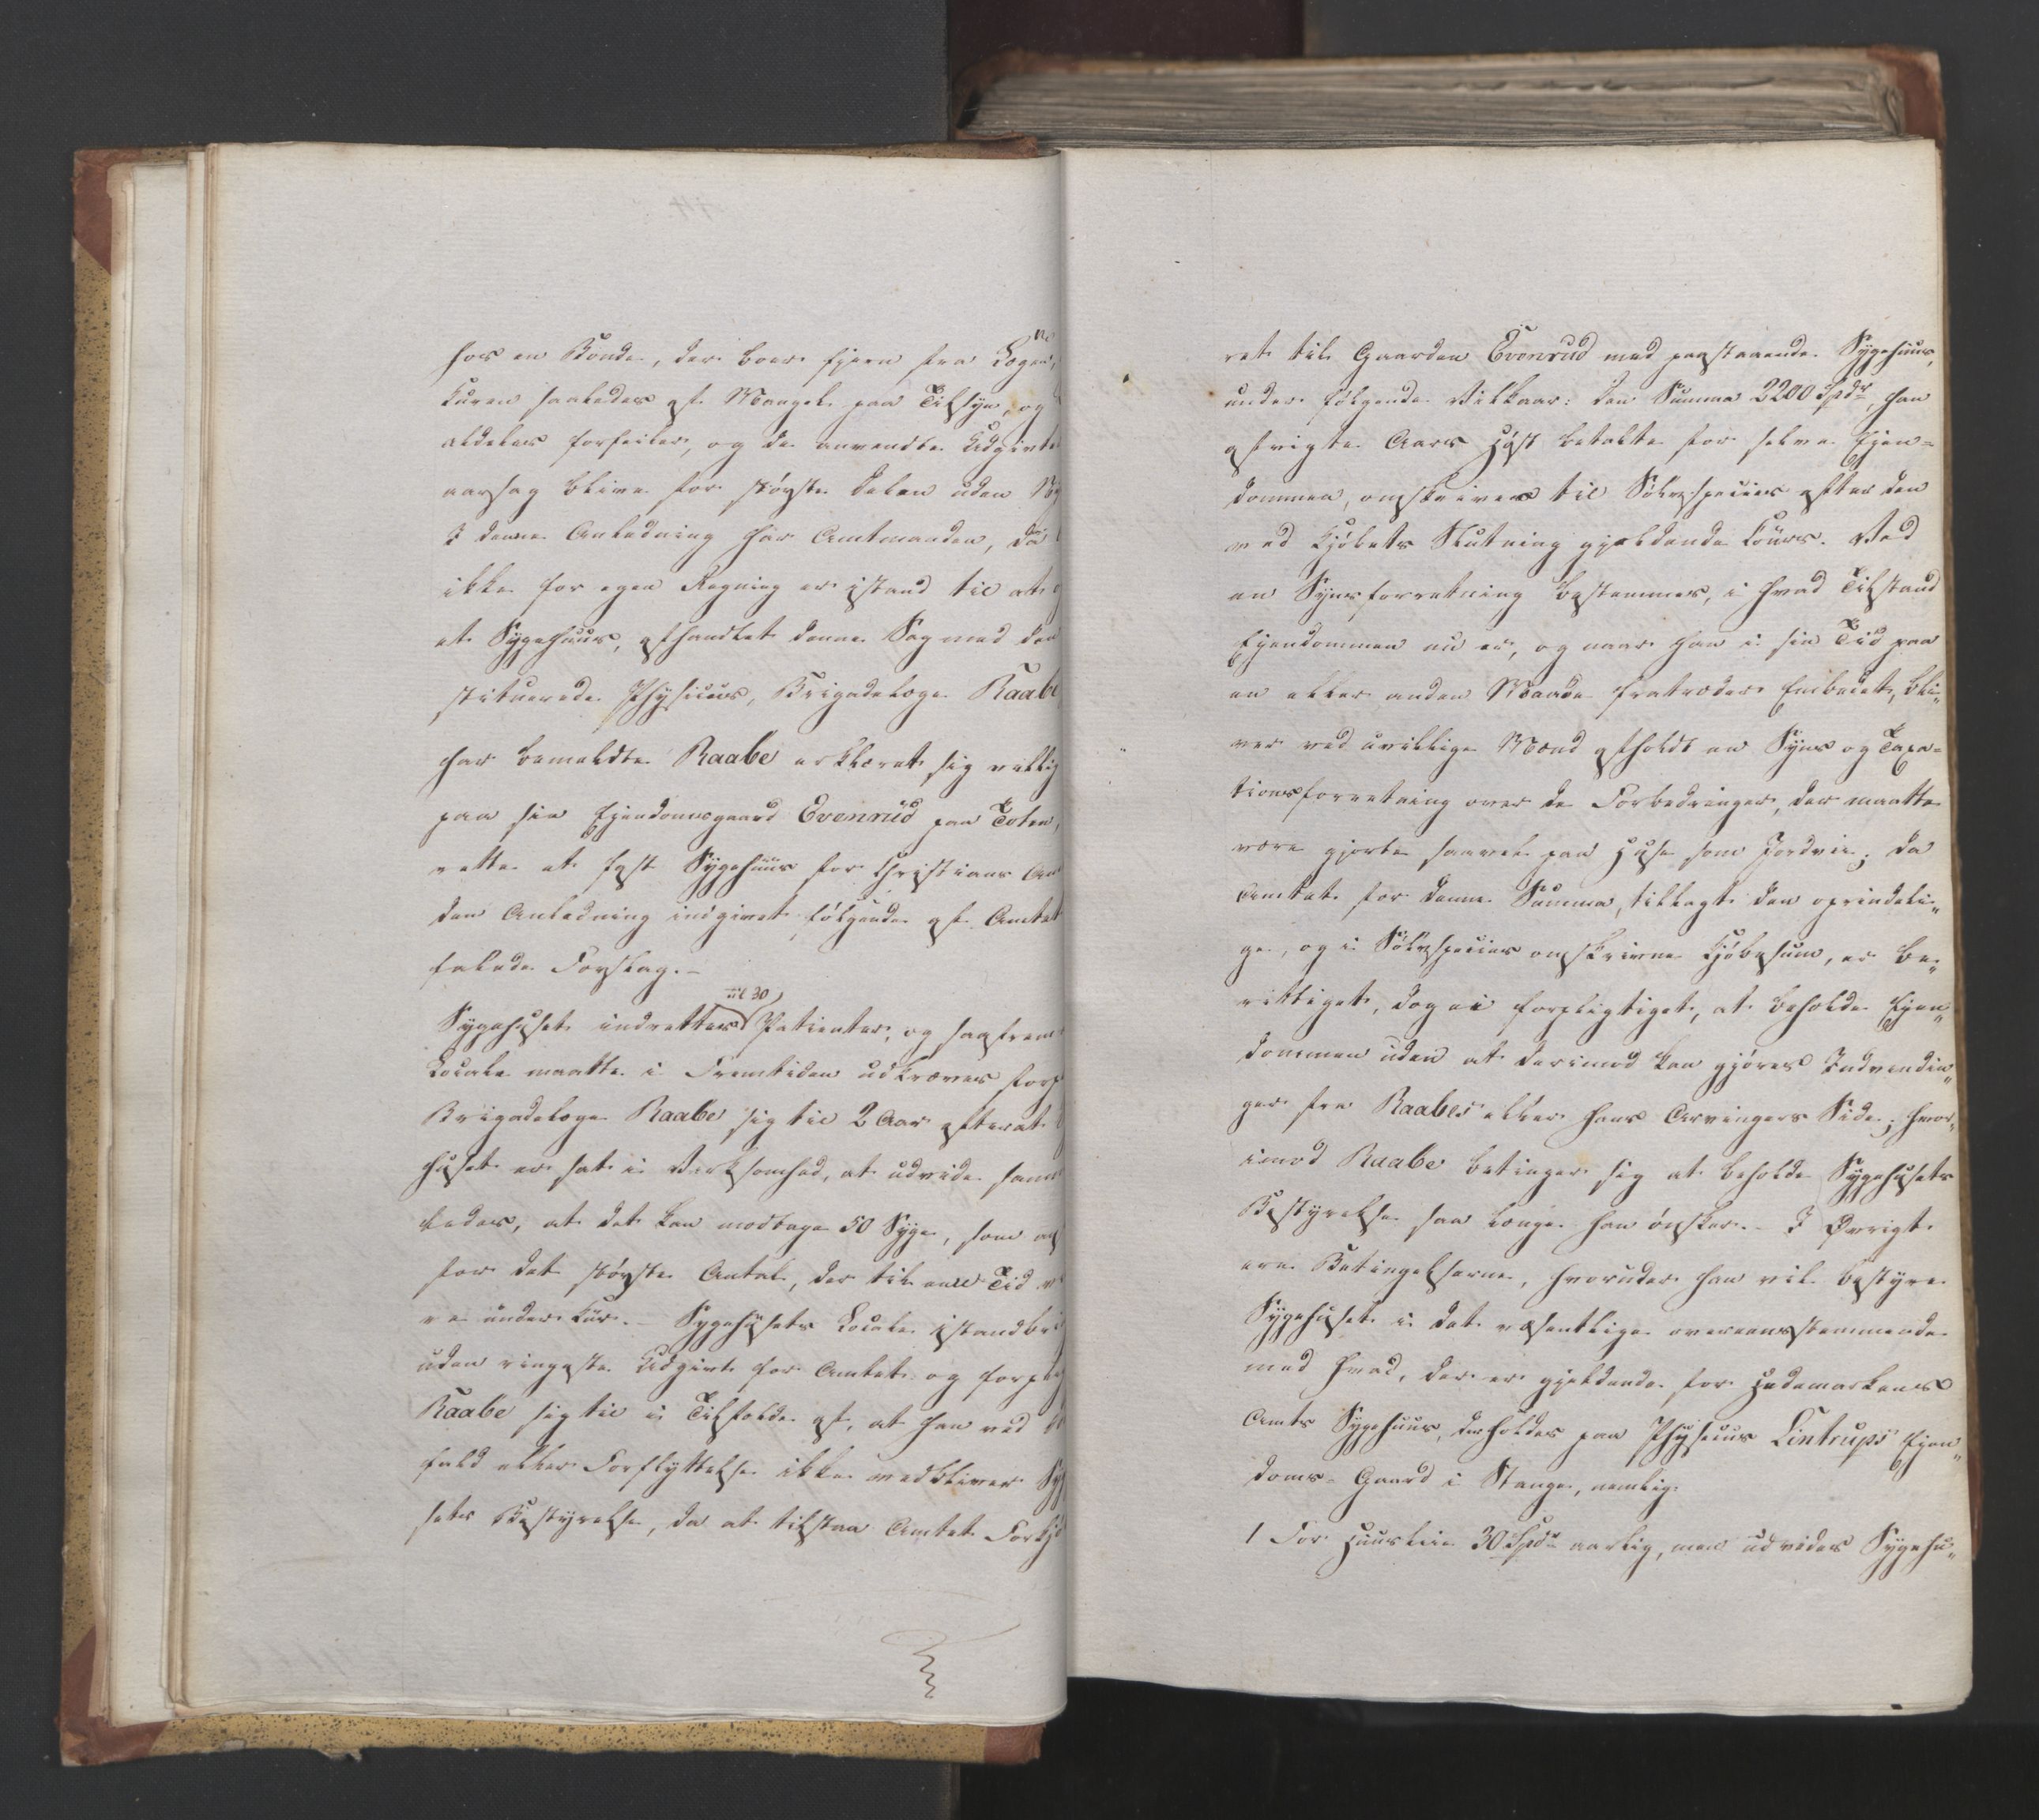 hos en Bonde, der boer fjern fra Lægen,
Kuren saaledes af Mangel paa Tilsyn, og
aldeles forfeiles, og de anvendte Udgivte
aarsag blive for største Delen uden
I denne Anledning har Amtmanden, da
ikke for egen Regning er istand til at
et Sygehuus, afhandlet denne Sag med den
stituerede Physicus, Brigadelæge Raabe
har bemeldte Raabe erklæret sig villig
paa sin Eiendomsgaard Evenrud paa Toten,
rette et fast Sygehuus for Christians Am
den Anledning indgivet følgende af Amtet
falede Forslag.-
Sygehuset indrettes til 30 Patienter, og saafrem
Locale maatte i Fremtiden udkræves forp
Brigadelæge Raabe sig til 2 Aar efterat
huset er sat i Verksomhed, at udvide sam
ledes, at det kan modtage 50 Syge, som an
for det største Antal, der til een Tid
re under Kur.- Sygehusets Locale istandbri
uden ringeste Udgivt for Amtet og forpli
Raabe sig til i Tilfælde af, at han ved
fald eller Forflyttelse ikke vedbliver Syg
sets Bestyrelse, da at tilstaa Amtet Forkjø
ret til Gaarden Evenrud med paastaaende Sygehuus,
under følgende Vilkaar: Den Summa 2200 Spdr, han
afvigte Aars Høst betalte for selve Eien=
dommen, omskrives til Sølvspecies efter den
ved Kjøbets Slutning gjeldende Cours. Ved
en Synsforretning bestemmes, i hvad Tilstand
Eiendommen nu er, og naar han i sin Tid paa
en eller anden Maade fratræder Embedet, bli„
ver ved uvillige Mænd afholdt en Syns og Taxa=
tionsforretning over de Forbedringer, der maatte
være gjorte saavel paa Huse som Jordvei; da
Amtet for denne Summa, tillagt den oprindeli„
ge, og i Sølvspecies omskrevne Kjøbesum, er be„
rettiget, dog ei forpligtiget, at beholde Eien„
dommen uden at derimod kan gjøres Indvendin„
ger fra Raabes eller hans Arvingers Side; hvor„
imod Raabe betinger sig at beholde Sygehusets
Bestyrelse saa længe han ønsker.- I Øvrigt
ere Betingelserne, hvorunder han vil bestyre
Sygehuset i det væsentlige overeensstemmende
med hvad, der er gjeldende for Hedemarkens
Amts Sygehuus, der holdes paa Physicus Lintrups Eien„
doms-Gaard i Stange, nemlig
1 For Huusleie 30 Spdr aarlig, men udvides Sygehu„